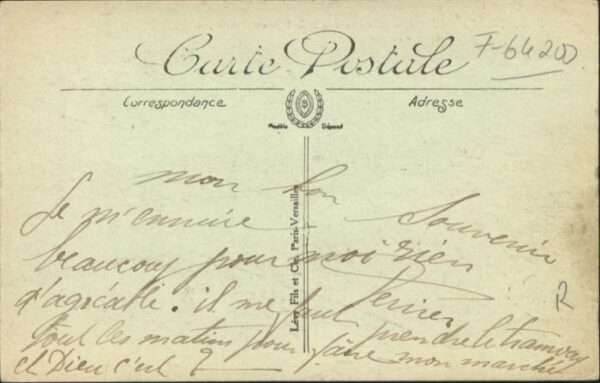 Carte Postale
F-64200
Correspondance
Adresse
Modèle Déposé
Lévy Fils et Cie, Paris-Versailles
mon bon
Je m'ennuie - Souvenir
beaucoup pour moi rien
d'agréable. il me faut
prendre le tramway
tout les matins pour faire mon marché
et Dieu c'est 2
R